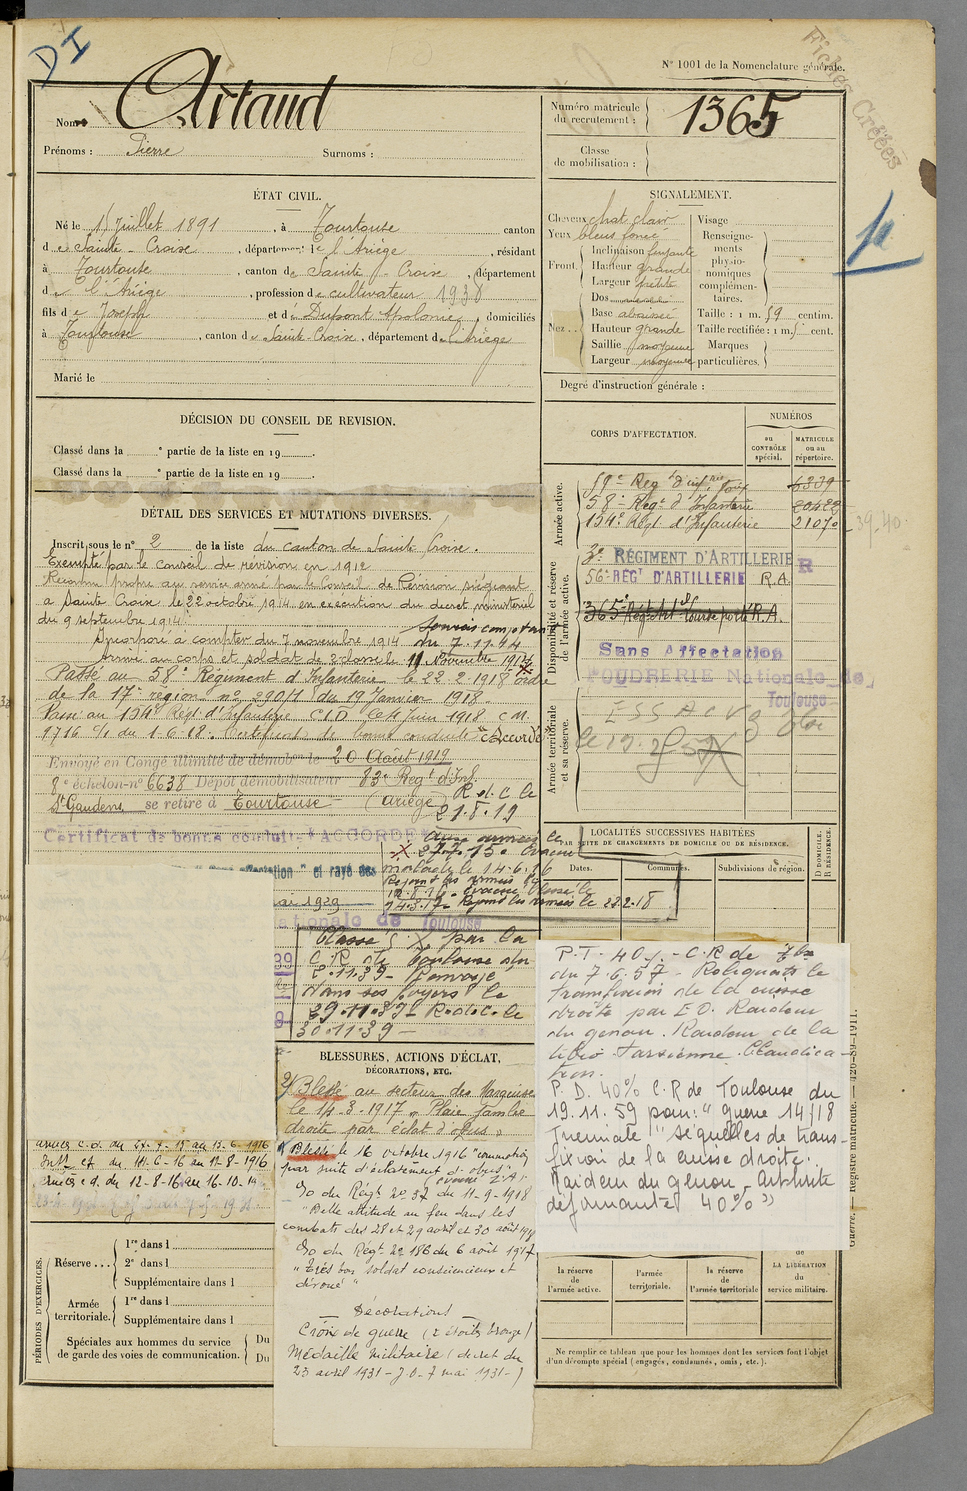 DI
Fiches Créées
N° 1001 de la Nomenclature générale.
Nom : Artaud
Prénoms : Pierre Surnoms :
Numéro matricule du recrutement : 1365
Classe de mobilisation :
ÉTAT CIVIL.
Né le 15 Juillet 1891, à Tourtouse canton
de Sainte-Croix, département de l'Ariège, résidant
à Tourtouse, canton de Sainte-Croix, département
de l'Ariège, profession de cultivateur 1938
fils de Joseph et de Dupont Apolonie, domiciliés
à Tourtouse, canton de Sainte-Croix, département de l'Ariège
Marié le
SIGNALEMENT.
Cheveux chat. clair Visage
Yeux bleus foncé
Front. Inclinaison fuyante
Hauteur grande
Largeur petite
Nez.. Dos
Base abaissée
Hauteur grande
Saillie moyenne
Largeur moyenne
Renseignements physionomiques complémentaires.
Taille : 1 m. 59 centim.
Taille rectifiée : 1 m. cent.
Marques particulières.
Degré d'instruction générale :
DÉCISION DU CONSEIL DE REVISION.
Classé dans la e partie de la liste en 19 .
Classé dans la e partie de la liste en 19 .
CORPS D'AFFECTATION.
NUMÉROS
au CONTRÔLE spécial.
MATRICULE ou au répertoire.
Armée active.
59e Reg. d'inf.rie Foix 6339
58e Regt d'Infanterie 20422
134e Régt d'Infanterie 21070
39.40
Disponibilité et réserve de l'armée active.
3e RÉGIMENT D'ARTILLERIE R
56e RÉGt D'ARTILLERIE R.A.
365e Régt Art. Lourde porté R.A.
Sans Affectation
POUDRERIE Nationale de Toulouse
Armée territoriale et sa réserve.
DÉTAIL DES SERVICES ET MUTATIONS DIVERSES.
Inscrit sous le n° 2 de la liste du canton de Sainte Croix.
Exempté par le conseil de revision en 1912
Reconnu propre au service armé par le Conseil de Révision siégeant
a Sainte Croix le 22 octobre 1914 en exécution du decret ministeriel
du 9 septembre 1914.
Services comptant du 7.11.14
Incorporé à compter du 7 novembre 1914
Arrivé au corps et soldat de 2e classe le 11 Novembre 1914
Passé au 58e Régiment d'Infanterie le 22-2-1918 ordre
de la 17e région n° 290/1 du 19 Janvier 1918.
Passé au 134e Régt d'Infanterie C.I.D. le 4 Juin 1918 C.M.
1716 du 1.6.18. Certificat de bonne conduite "Accordé"
Envoyé en Congé illimité de démobon le 20 Août 1919
8e échelon n° 6638 Dépôt démobilisateur 83e Regt d'Inf.
St Gaudens se retire à Tourtouse (Ariège) R.d.C. le
21.8.19
Certificat de bonne conduite "ACCORDÉ"
Affectation" et rayé des
mai 1929
nationale de Toulouse
aux armées le
27.7.15. Evacué
malade le 14.6.16
Rejoint les armées le
12.8.16. Evacué blessé le
14.3.17. Rejoint les armées le 22.2.18
Classé S. X par la
C.R. de Toulouse du
5.11.39 - Renvoyé
dans ses foyers le
29.11.39 - R.d.c. le
30.11.39 -
LOCALITÉS SUCCESSIVES HABITÉES
PAR SUITE DE CHANGEMENTS DE DOMICILE OU DE RÉSIDENCE.
Dates.
Communes.
Subdivisions de région.
D DOMICILE.
R RÉSIDENCE.
P.T. 40% - C.R de Tlse
du 7.6.57 - Reliquats de
transfixion de la cuisse
droite par E.O. Raideur
du genou. Raideur de la
tibio-tarsienne. Claudication.
P.D. 40% C.R de Toulouse du
19.11.59 pour : "guerre 14/18
Imminente "Séquelles de transfixion de la cuisse droite.
Raideur du genou - Arthrite
déformante 40%"
BLESSURES, ACTIONS D'ÉCLAT,
DÉCORATIONS, ETC.
2) Blessé au secteur des Marquises
le 14-3-1917 "Plaie jambe
droite par éclat d'obus"
1) Blessé le 16 octobre 1916 "commotion
par suite d'éclatement d'obus"
(évacué Z.A.)
Oo du Régt n° 37 du 11-9-1918
"Belle attitude au feu dans les
combats des 28 et 29 avril et 30 août 1918
Oo du Régt n° 186 du 6 août 1917
"Très bon soldat consciencieux et
dévoué"
Décorations
Croix de guerre (2 étoiles bronze)
Médaille Militaire (décret du
23 avril 1931 - J.O. 7 mai 1931-)
Intr cf du 14-6-16 au 11-8-1916
armées c.d. du 12-8-16 au 16-10-16
PÉRIODES D'EXERCICES.
Réserve... 1re dans l
2e dans l
Supplémentaire dans l
Armée territoriale. 1re dans l
Supplémentaire dans l
Spéciales aux hommes du service de garde des voies de communication. Du
Du
la réserve de l'armée active.
l'armée territoriale.
la réserve de l'armée territoriale
de LA LIBÉRATION du service militaire.
Ne remplir ce tableau que pour les hommes dont les services font l'objet
d'un décompte spécial (engagés, condamnés, omis, etc.).
Guerre. — Registre matricule. — 420-89-1911.